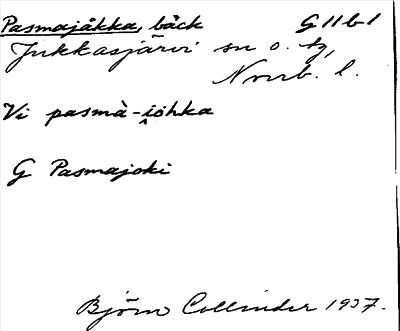 Pasmajåkka, bäck G 11 b 1
Jukkasjärvi sn o. tg,
Norrb. l.
Vi pasmà-i̯ohka
G Pasmajoki
Björn Collinder 1937.